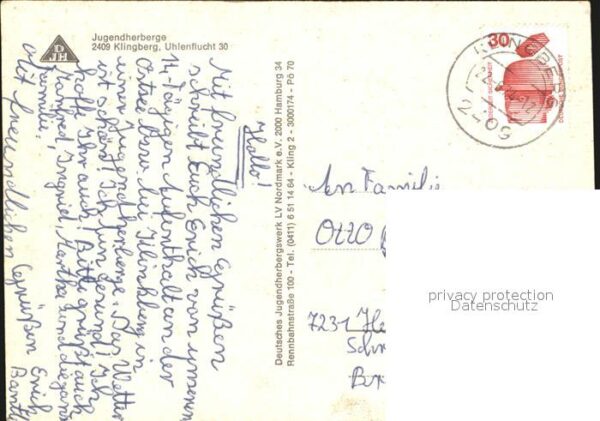 Jugendherberge
2409 Klingberg, Uhlenflucht 30
DJH
Hallo!
Mit freundlichen Grüßen
schreibt Euch Erich von unserem
14-tägigen Aufenthalt an der
Ostsee bzw. bei Klingberg in
einer Jugendherberge. Das Wetter
ist schön! Ich bin gesund! Ich
hoffe Ihr auch! Bitte grüßt auch
Manfred, Ingrid, Martha und die ganze
Familie!
Mit freundlichen Grüßen Erich
Deutsches Jugendherbergswerk LV Nordmark e.V. 2000 Hamburg 34
Rennbahnstraße 100 - Tel. (0411) 6 51 14 64 - Kling 2 - 3000174 - Pö 70
30
An Familie
Otto
7231
privacy protection
Datenschutz